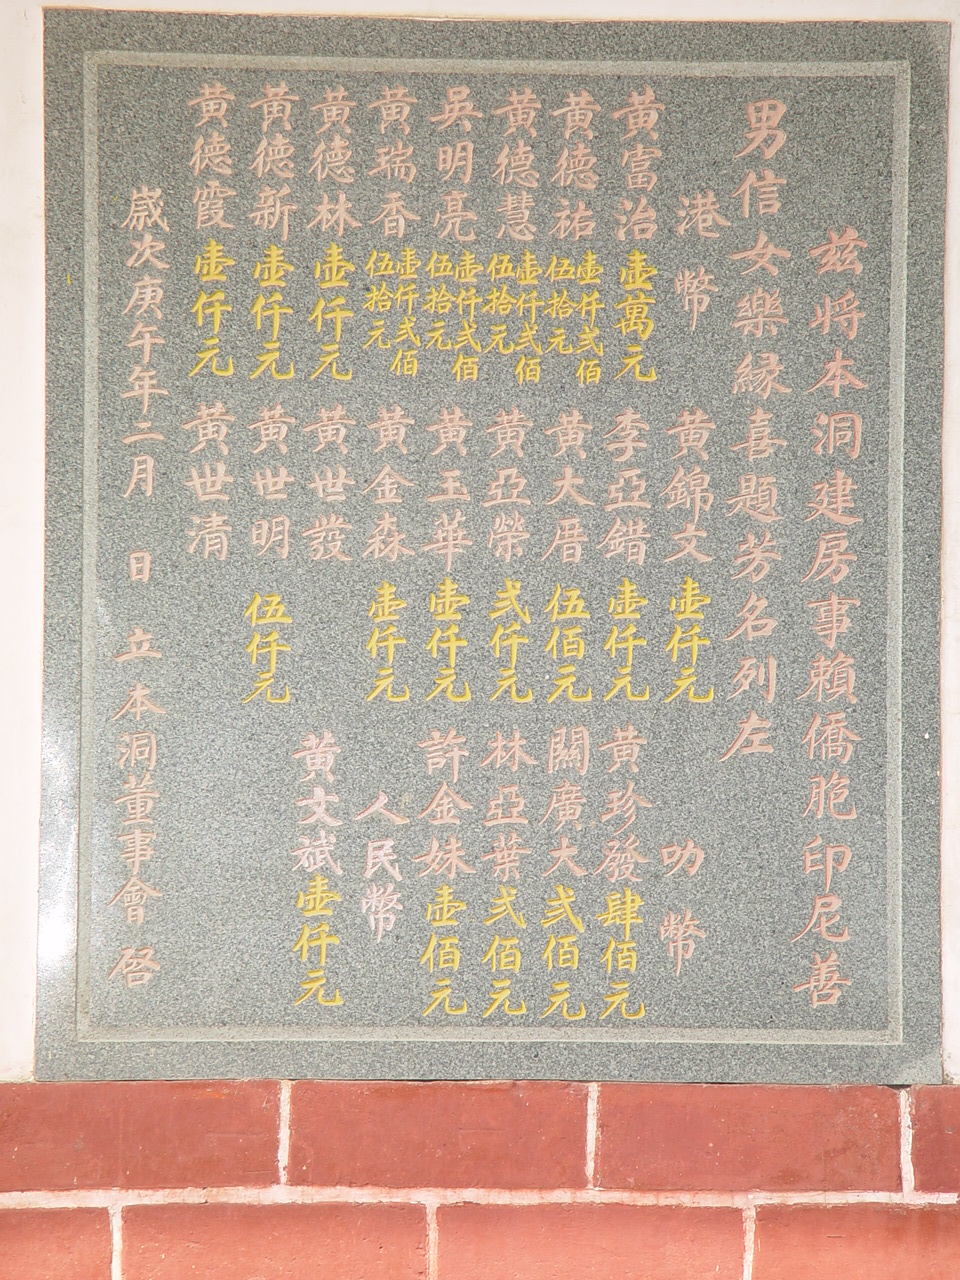 兹將本洞建房事賴僑胞印尼善
男信女樂縁喜題芳名列左
港幣
黃富治 壹萬元
黃德祐 壹仟弍佰伍拾元
黃德慧 壹仟弍佰伍拾元
吳明亮 壹仟弍佰伍拾元
黃瑞香 壹仟弍佰伍拾元
黃德林 壹仟元
黃德新 壹仟元
黃德霞 壹仟元
黃錦文 壹仟元
李亞錯 壹仟元
黃大厝 伍佰元
黃亞榮 弍仟元
黃王華 壹仟元
黃金森 壹仟元
黃世發
黃世明 伍仟元
黃世清
叻幣
黃珍發 肆佰元
關廣大 弍佰元
林亞葉 弍佰元
許金妹 壹佰元
人民幣
黃文斌 壹仟元
歲次庚午年二月 日 立本洞董事會 啓